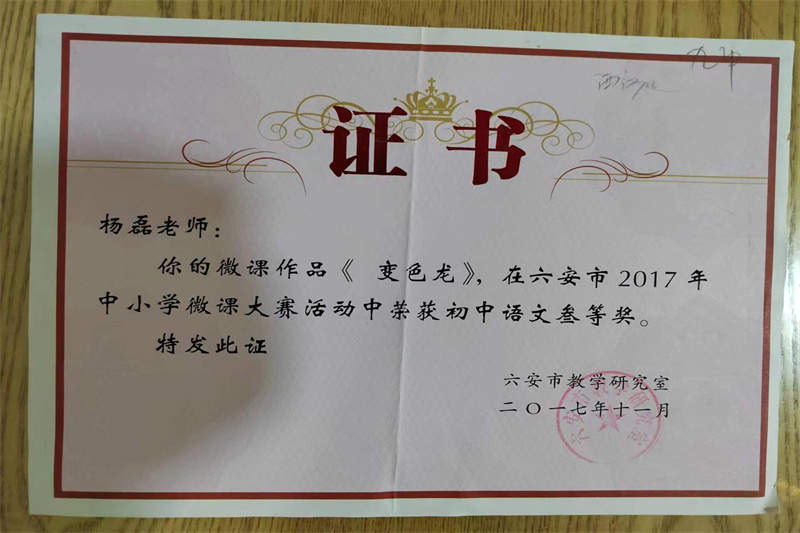 九中
证书
杨磊老师：
你的微课作品《 变色龙》，在六安市 2017 年
中小学微课大赛活动中荣获初中语文叁等奖。
特发此证
六安市教学研究室
二〇一七年十一月
六安市教学研究室